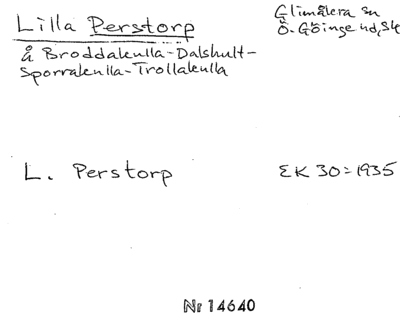 Lilla Perstorp
å Broddakulla-Dalshult-
Sporrakulla-Trollakulla
Glimåkra sn
Ö. Göinge hd, Sk
L. Perstorp
EK 30 = 1935
Nr 14640